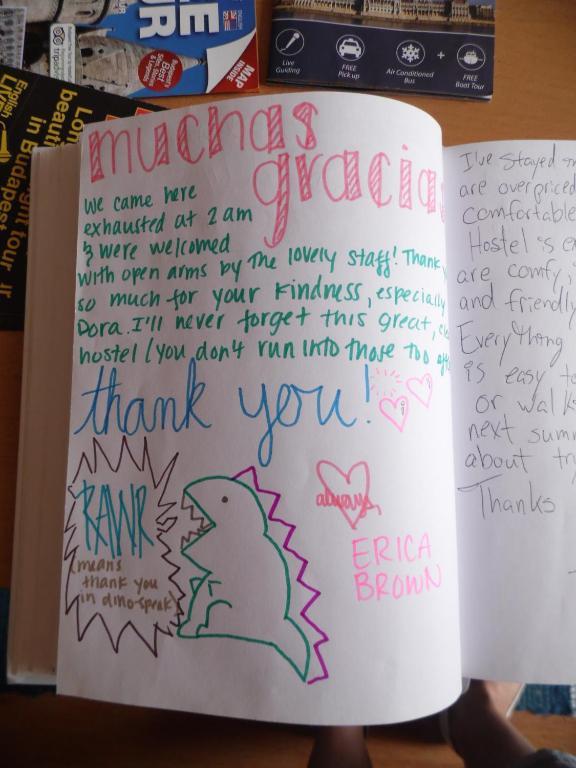 UR
MAP
INSIDE
Live
Guiding
FREE
Pick up
Air Conditioned
Bus
+
FREE
Boat Tour
in Budapest
muchas
gracias
we came here
exhausted at 2 am
& were welcomed
with open arms by the lovely staff! Thank
so much for your kindness, especially
Dora. I'll never forget this great,
hostel (you don't run into those too
thank you!
RAWR
(means
thank you
in dino-speak)
always,
ERICA
BROWN
I've stayed
are overpriced
comfortable
Hostel is
are comfy,
and friendly
Everything
is easy to
or walk
next summ
about
Thanks